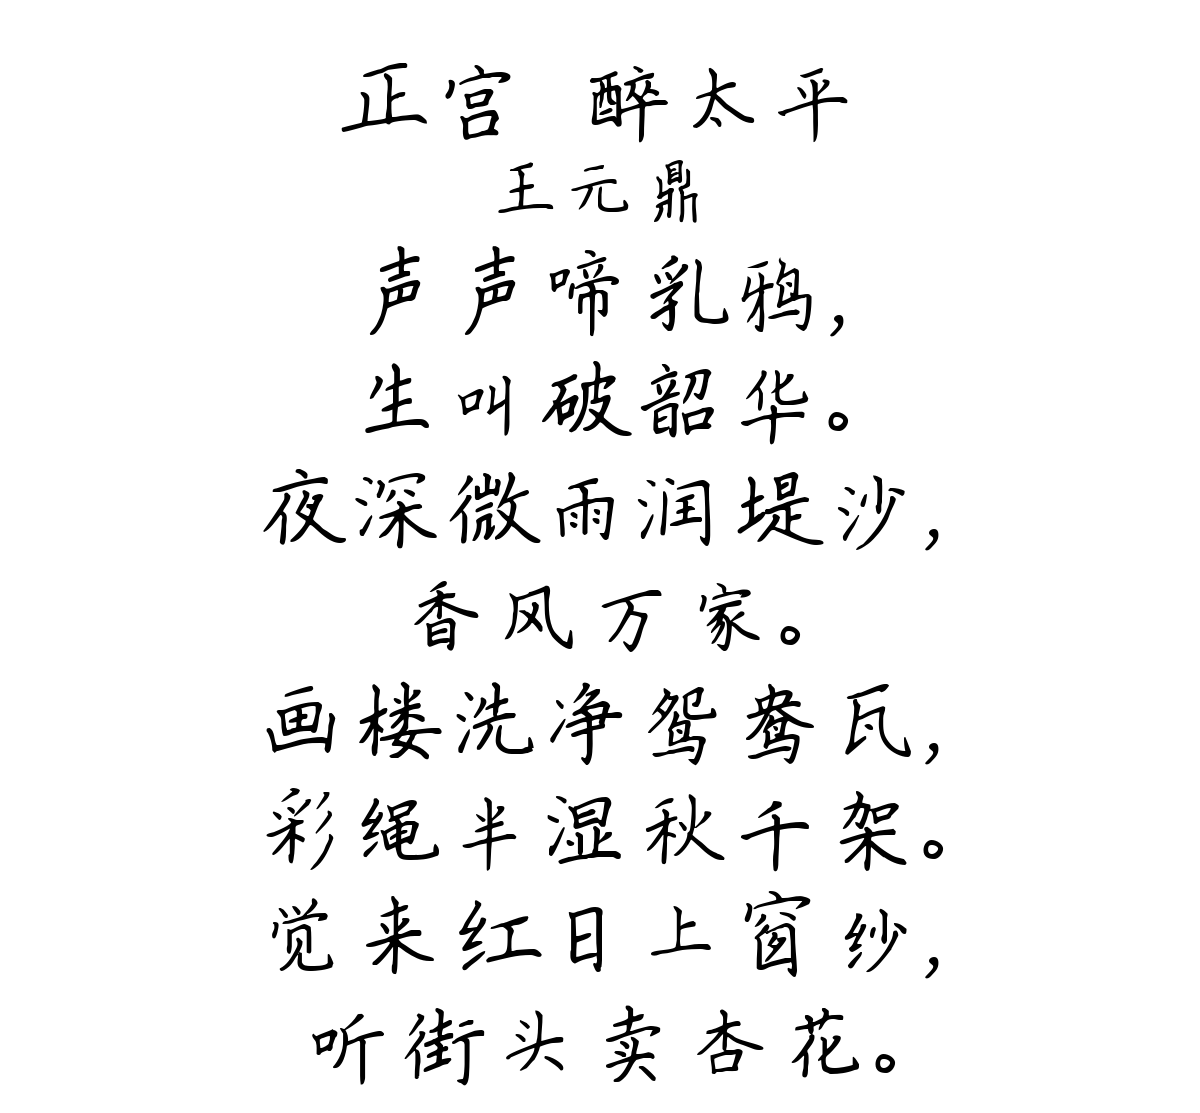 正宫 醉太平
王元鼎
声声啼乳鸦,
生叫破韶华。
夜深微雨润堤沙,
香风万家。
画楼洗净鸳鸯瓦,
彩绳半湿秋千架。
觉来红日上窗纱,
听街头卖杏花。